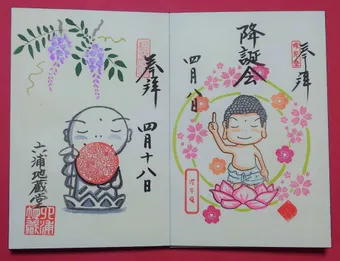 奉拝
降誕会
四月八日
奉拝
四月十八日
六浦地蔵堂